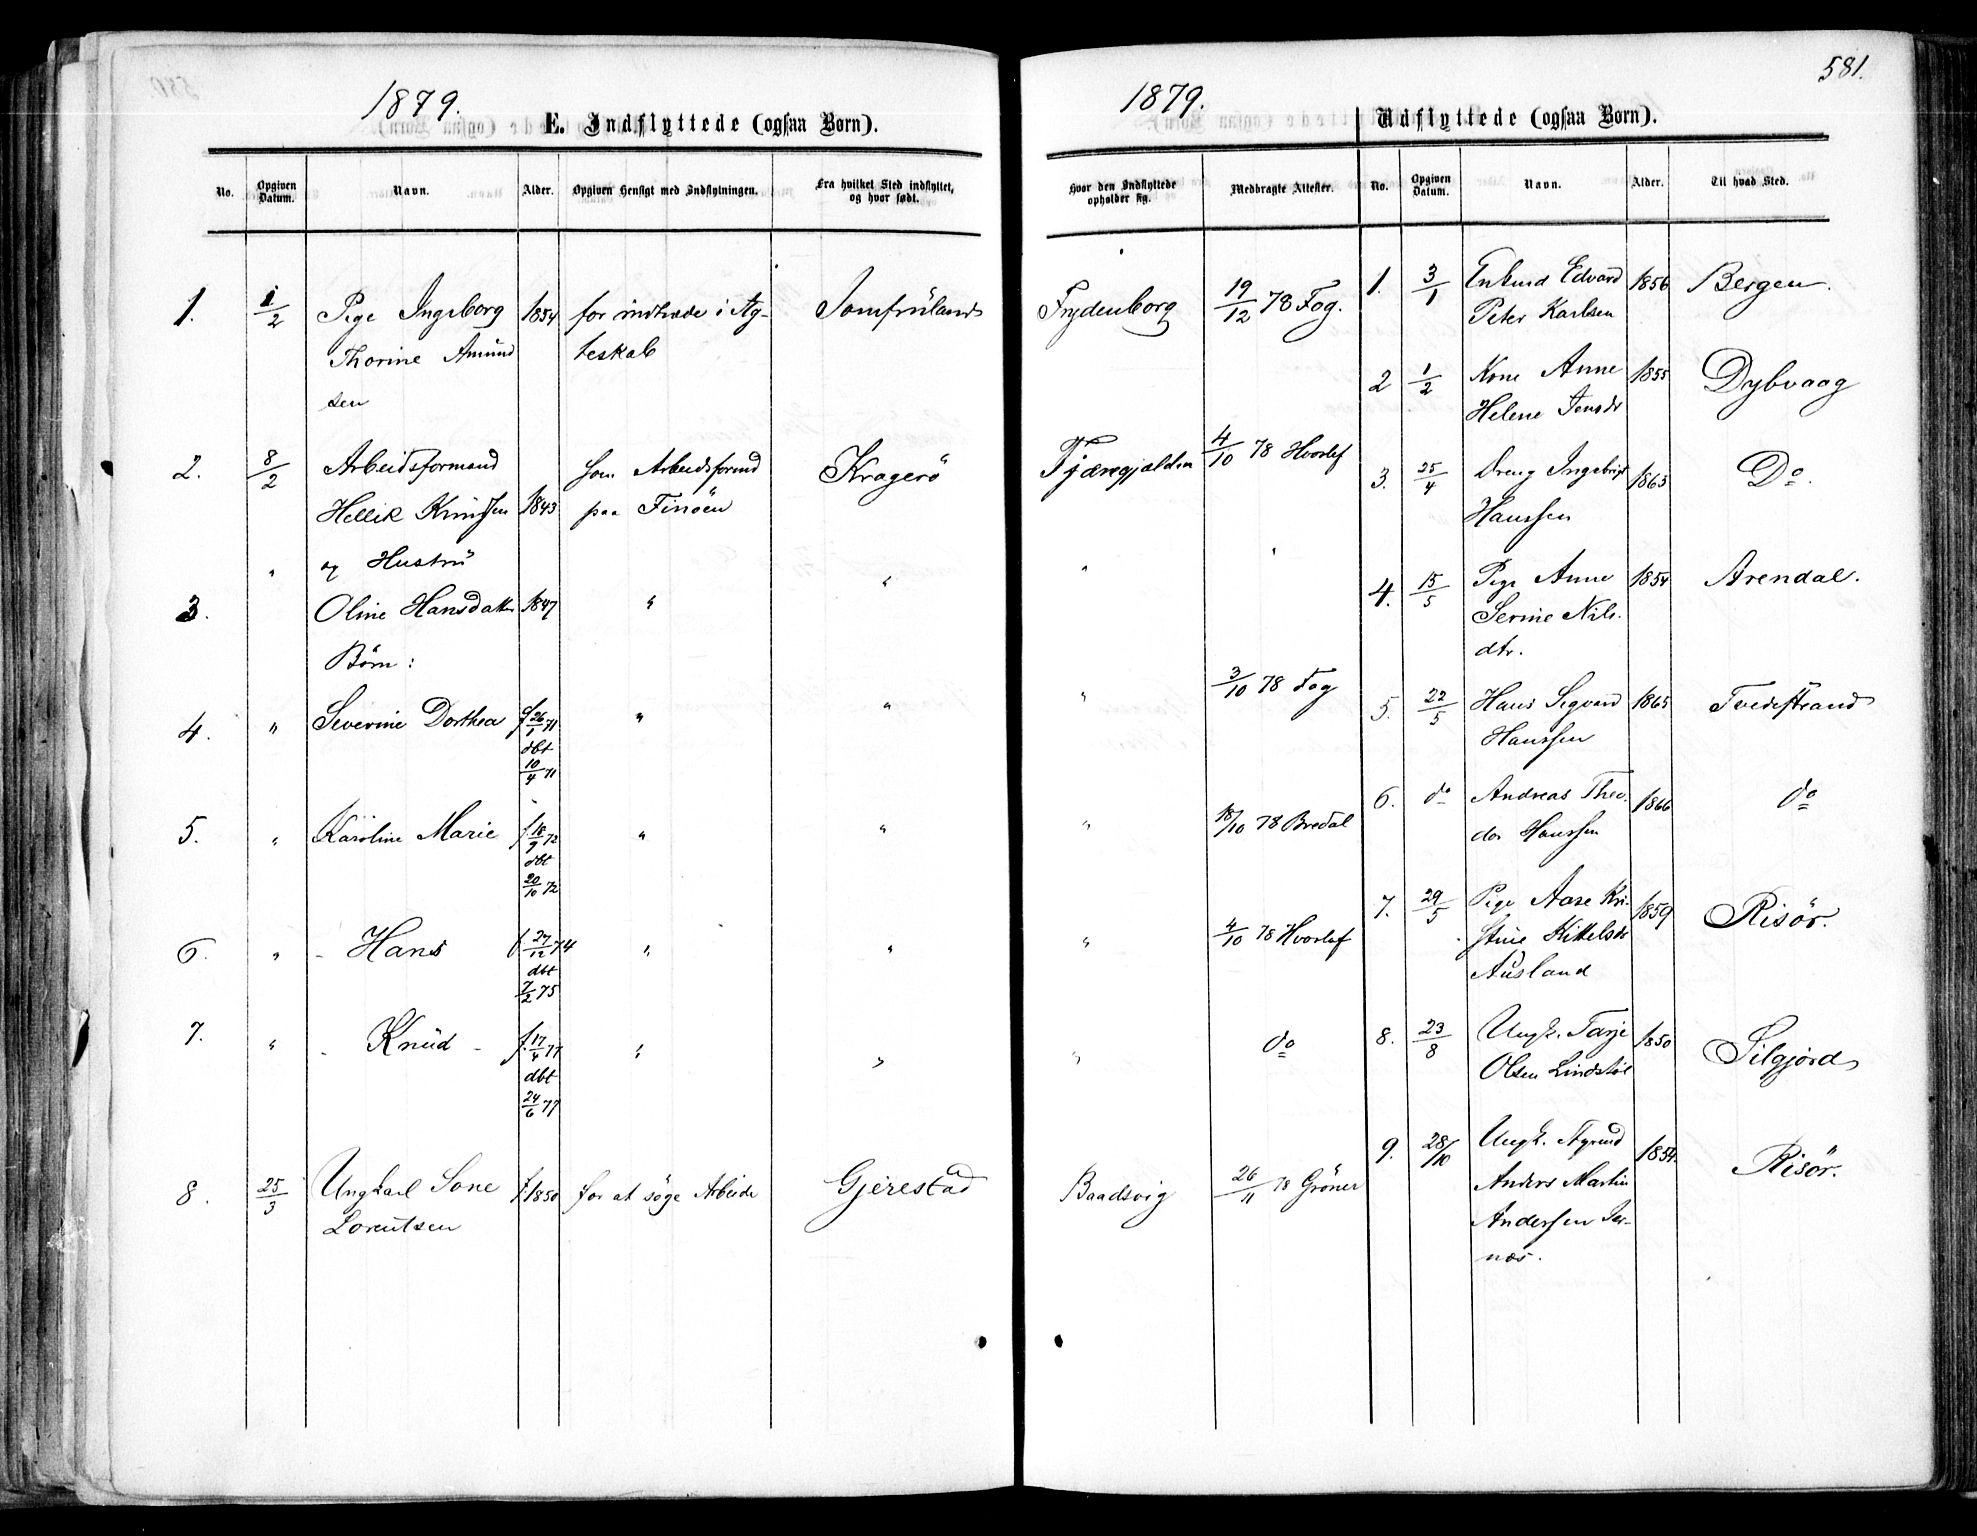 1879.
E. Indflyttede (ogsaa Børn).
No.
Opgiven Datum.
Navn.
Alder.
Opgiven Hensigt med Indflytningen.
Fra hvilket Sted indflyttet, og hvor født.
1. 1/2 Pige Ingeborg 1854 for indtræde i Æg- Jomfruland
Thorine Amund teskab
sen
2. 8/2 Arbeidsformand som Arbeidsformd Kragerö
Hellik Knudsen 1843 paa Finöen
" og Hustru "
3. Oline Hansdatter 1847 "
Börn:
4. " Severine Dorthea f 26/1 71 " "
dbt
10/4 71
5. " Karoline Marie f 18/9 72 " "
dbt
20/10 72
6. " - Hans f 27/12 74 " "
dbt
7/2 75
7. " - Knud - f. 17/4 77 " "
dbt
24/6 77
8. 25/3 Ungkarl Sone f. 1850 for at söge Arbeide Gjerestad
Lorentsen
1879.
581.
Udflyttede (ogsaa Børn).
Hvor den Indflyttede opholder sig.
Medbragte Attester.
No.
Opgiven Datum.
Navn.
Alder.
Til hvad Sted.
Frydenborg 19/12 78 Fog.
4/10 78 Hvorlef
" "
" 3/10 78 Fog
" 18/10 78 Bredal
" 4/10 78 Hvorlef
" do
Baadsvig 26/11 78 Gröner
1. 3/1 Edvard 1856 Bergen.
Peter Karlsen
2 1/2 Kone Anne 1855 Dybvaag
Helene Jensdr
3. 25/4 Dreng Ingebrigt 1863 Do.
Hanssen
4. 15/5 Pige Anne 1854 Arendal.
Serine Nils.
dtr.
5. 22/5 Hans Segvard 1865 Tvedestrand
Hanssen
6. do Andreas Theo. 1866 do
dor Hanssen
7. 29/5 Pige Aase Kri- 1859 Risör.
stine Kittelsdr
Ausland
8. 23/8 Ungk. Tarje 1850 Silgjord
Olsen Lindstöl
9. 28/10 Ungk. 1854. Risör.
Anders Martin
Andersen Jer-
næs.